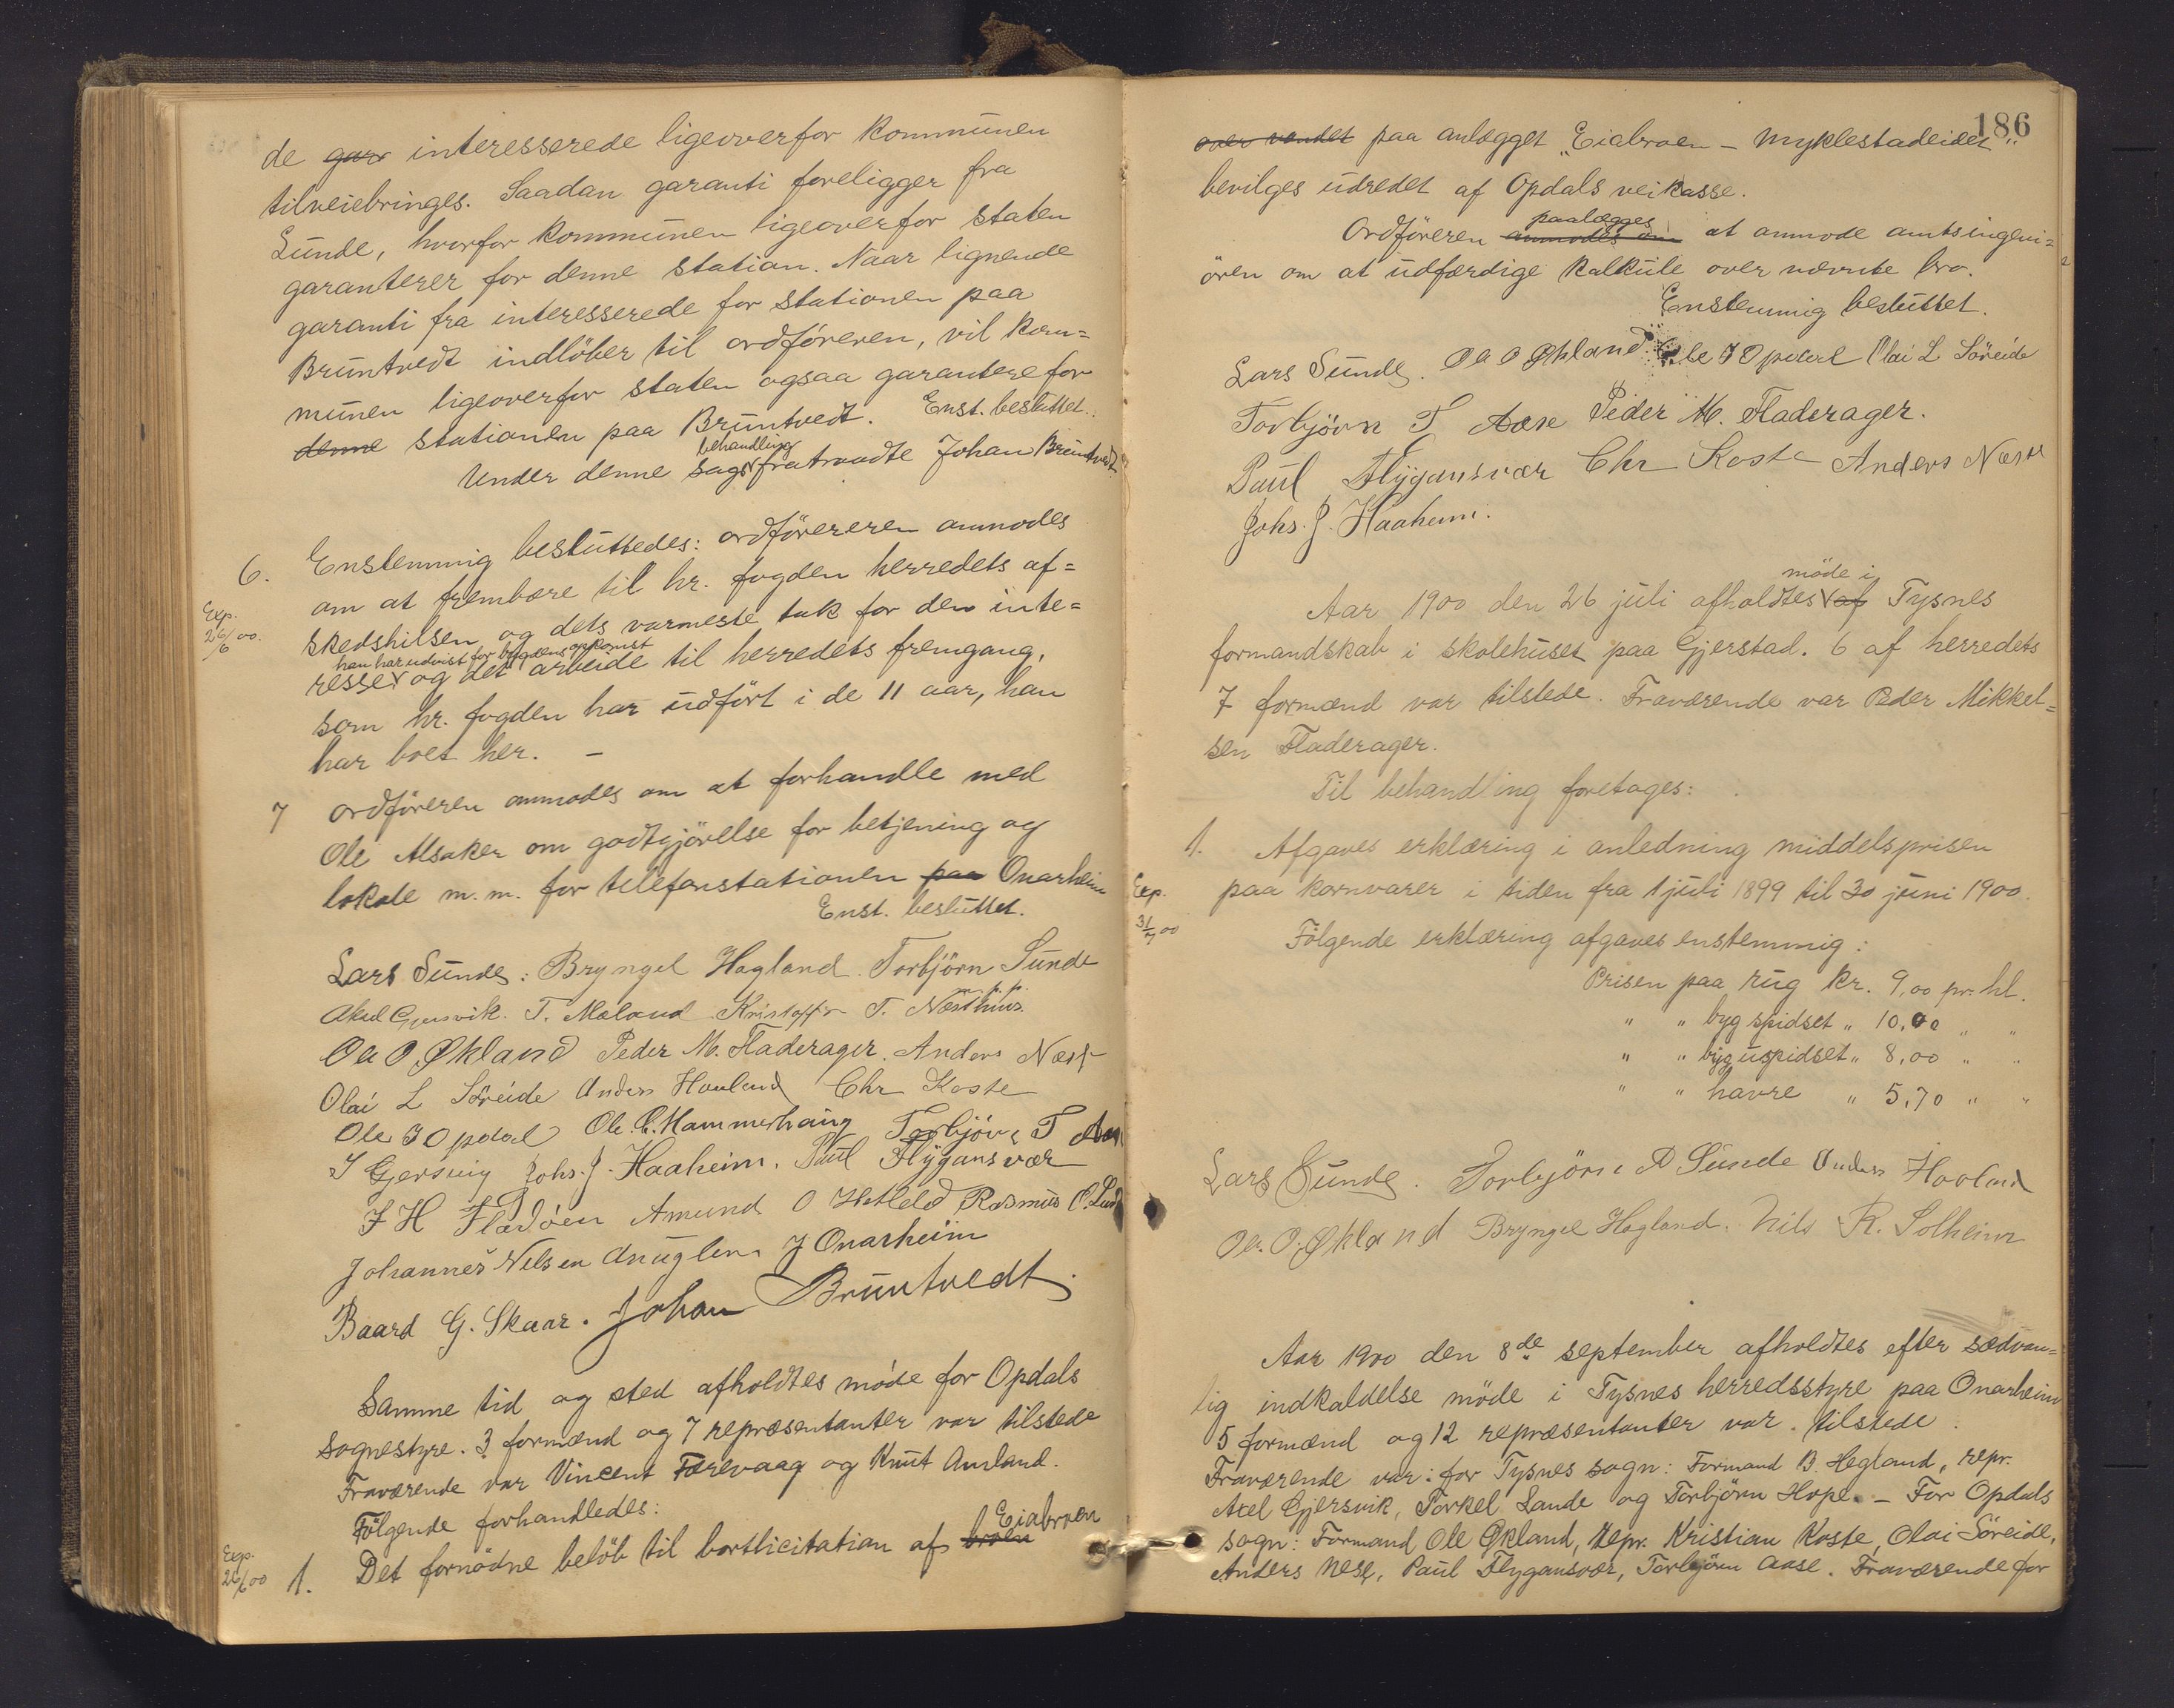 de gar interesserede ligeoverfor kommunen
tilveiebringes. Saadan garanti foreligger fra
Sunde, hvorfor kommunen ligeoverfor staten
garanterer for denne station. Naar lignende
garanti fra interesserede for stationen paa
Bruntvedt indlöber til ordföreren, vil kom=
munen ligeoverfor staten ogsaa garantere for
denne stationen paa Bruntvedt. Enst. besluttet.
behandling
Under denne sags fratraadte Johan Bruntvedt.
6. Enstemmig besluttedes: ordförereren anmodes
om at frembære til hr. fogden herredets af=
Exp. 26/6 00.
skedshilsen og dets varmeste tak for den inte=
han har udvist for bygdens opkomst
resse og det arbeide til herredets fremgang,
som hr. fogden har udfört i de 11 aar, han
har boet her. –
7 Ordföreren anmodes om at forhandle med
Ole Alsaker om godtgjörelse for betjening og
lokale m.m. for telefonstationen paa Onarheim
Enst. besluttet.
Lars Sunde. Bryngel Hagland. Torbjörn Sunde
Aksel Gjersvik. T. Meland Kristoffer T. Næsthus m.p.p.
Ole O. Økland Peder M. Fladerager. Anders Nese
Olai L Söreide Anders Hovland Chr Koste
Ole J Opdal Ole C. Hammerhaug Torbjörn T Aase
Johs. J. Haaheim. Paul Flygansvær
J H Fladöen Amund O Hetleld Rasmus O.
Johannes Nilsen Anuglen J Onarheim
Baard G. Skaar. Johan Bruntvedt.
Samme tid og sted afholdtes möde for Opdals
sognestyre. 3 formænd og 7 repræsentanter var tilstede
Fraværende var Vincent Færevaag og Knut Amland.
Fölgende forhandledes:
Exp. 26/6 00
Eiabroen
1. Det fornödne belöb til bortlicitation af broen
186
over vandet paa anlægget „Eiabroen – Myklestadeidet"
bevilges udredet af Opdals veikasse.
paalægges
Ordföreren anmodes om at anmode amtsingeni=
ören om at udfærdige kalkule over nævnte bro.
Enstemmig besluttet.
Lars Sunde. Ole O Økland. Ole J Opdal Olai L Söreide
Torbjörn T Aase Peder M. Fladerager.
Paul Flygansvær Chr Koste Anders Nese
Johs. J. Haaheim.
möde i
Aar 1900 den 26 juli afholdtes af Tysnes
formandskab i skolehuset paa Gjerstad. 6 af herredets
7 formænd var tilstede. Fraværende var Peder Mikkel=
sen Fladerager.
Til behandling foretages:
1. Afgaves erklæring i anledning middelsprisen
Exp. 31/7 00
paa kornvarer i tiden fra 1 juli 1899 til 30 juni 1900.
Fölgende erklæring afgaves enstemmig:
Prisen paa rug kr. 9,00 pr. hl.
" " byg spidset " 10,00 " "
" " byg uspidset " 8,00 " "
" " havre " 5,70 " "
Lars Sunde. Torbjörn R Sunde Anders Hovland
Ole. O. Økland Bryngel Hagland. Nils R. Solheim
Aar 1900 den 8de september afholdtes efter sædvan=
lig indkaldelse möde i Tysnes herredsstyre paa Onarheim
5 formænd og 12 repræsentanter var tilstede.
Fraværende var: for Tysnes sogn: Formand B. Hegland, repr.
Axel Gjersvik, Torkel Lande og Torbjörn Hope. – For Opdals
sogn: Formand Ole Økland, Repr. Kristian Koste, Olai Söreide,
Anders Nese, Paul Flygansvær, Torbjörn Aase. Fraværende for